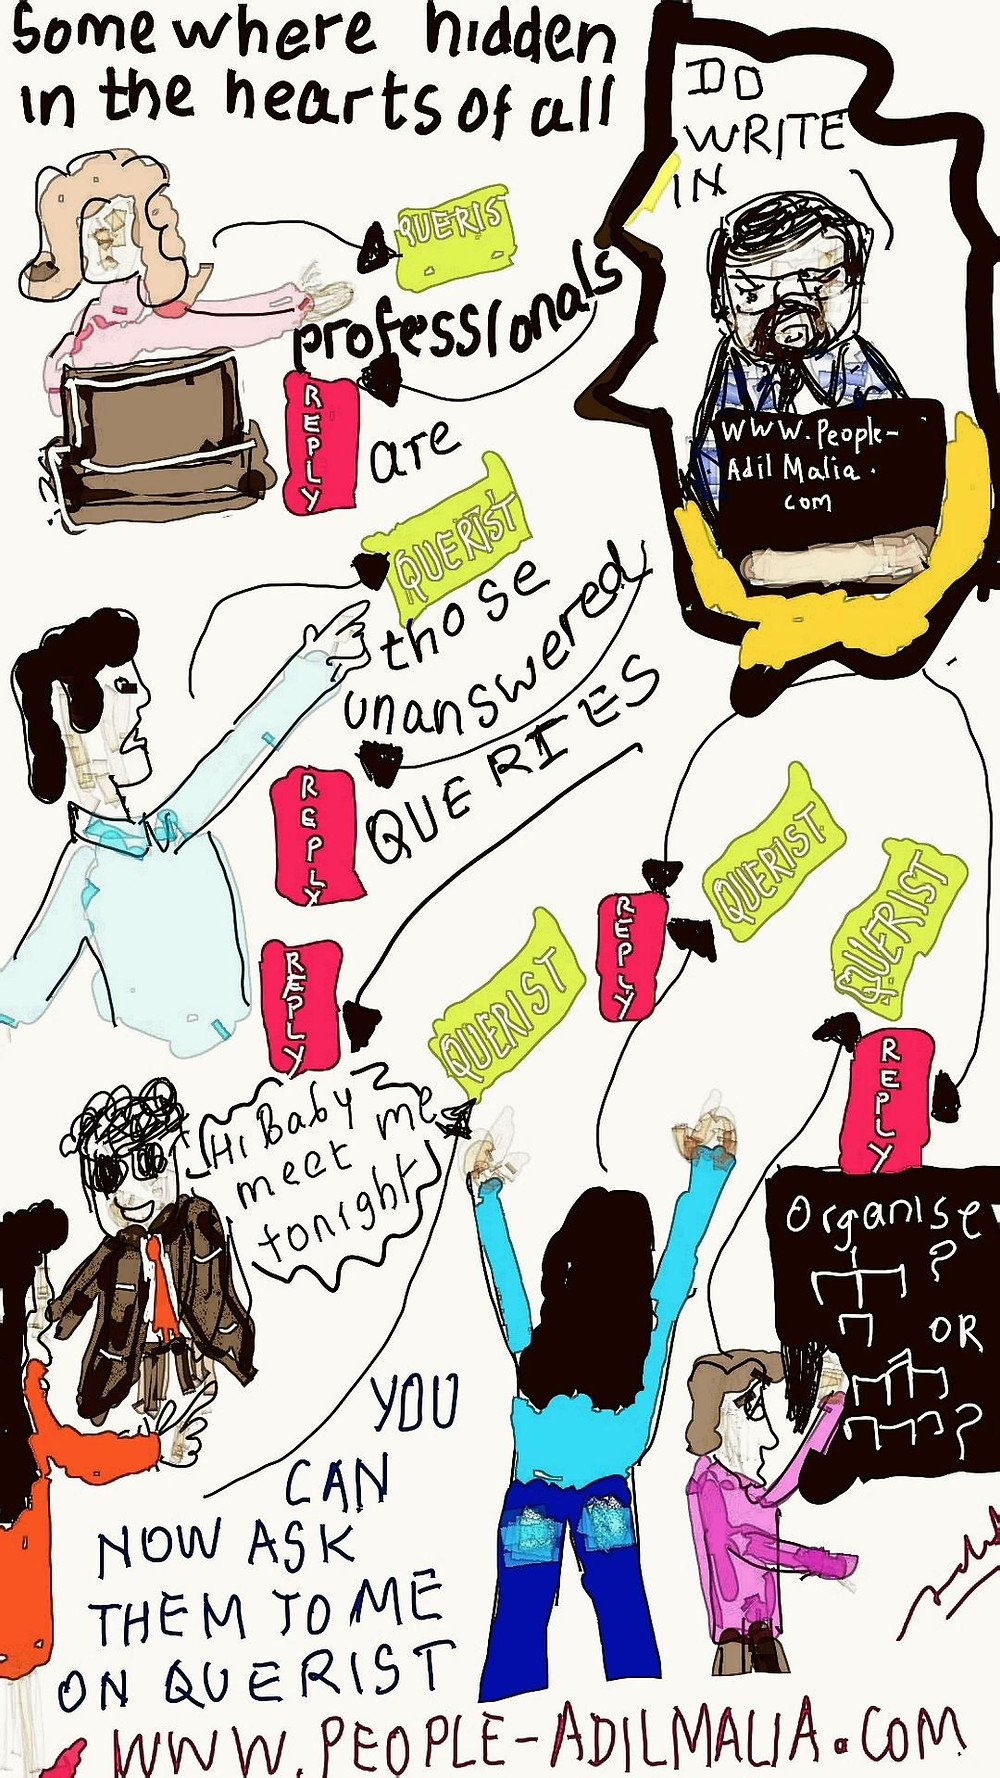 Somewhere hidden
in the hearts of all
professionals
are
those
unanswered
QUERIES
DO
WRITE
IN
WWW.People-
Adil Malia.
com
QUERIS
REPLY
QUERIST
REPLY
REPLY
QUERIST
REPLY
QUERIST
QUERIST
REPLY
Hi Baby
meet me
tonight
Organise
?
OR
?
YOU
CAN
NOW ASK
THEM TO ME
ON QUERIST
WWW.PEOPLE-ADILMALIA.COM